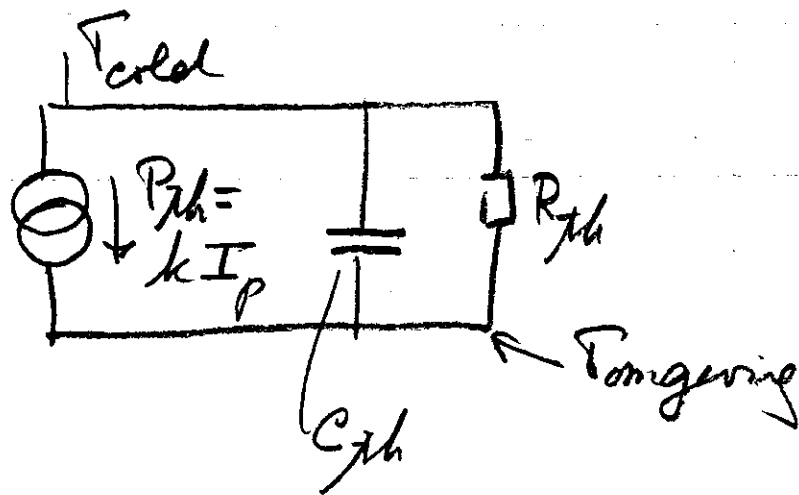 Tcold
Pth =
k Ip
Rth
Tomgeving
Cth